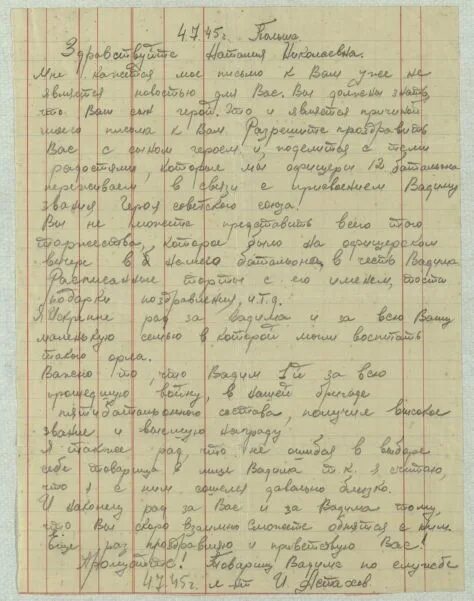 4.7.45 г. Польша.
Здравствуйте Наталия Николаевна.
Мне кажется мое письмо к Вам уже не
является новостью для Вас. Вы должны знать,
что Ваш сын герой. Это и является причиной
моего письма к Вам. Разрешите проздравить
Вас с сыном героем и, поделится с теми
радостями, которые мы офицеры 12 батальона
переживаем в связи с присвоением Вадиму
звания Героя советского союза.
Вы не можете представить всего того
торжества, которое было на офицерском
вечере в нашего батальона, в честь Вадима
Расписанные торты с его именем, тосты
подарки поздравления, и.т.д.
Я искренне рад за Вадима и за всю Вашу
маленькую семью в которой могли воспитать
такого орла.
Важно то, что Вадим 1й за всю
прошедшую войну, в нашей бригаде
пятибатальонного состава, получил высокое
звание и высшую награду
Я также рад, что не ошибся в выборе
себе товарища в лице Вадима т.к. я считаю,
что я с ним сошелся довольно близко.
И наконец рад за Вас и за Вадима тому,
что Вы скоро взаимно сможете обнятся с ним.
Еще раз проздравляю и приветствую Вас!
Товарищ Вадима по службе
4.7.45 г. л-нт И.